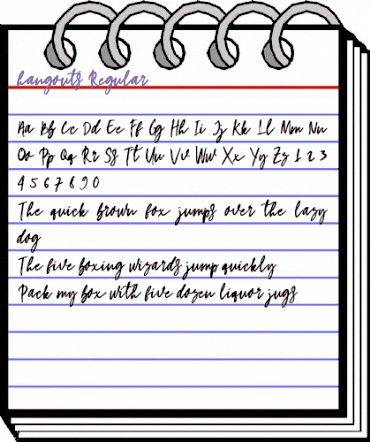 hangouts Regular
Aa Bb Cc Dd Ee Ff Gg Hh Ii Jj Kk Ll Mm Nn
Oo Pp Qq Rr Ss Tt Uu Vv Ww Xx Yy Zz 1 2 3
4 5 6 7 8 9 0
The quick brown fox jumps over the lazy
dog
The five boxing wizards jump quickly
Pack my box with five dozen liquor jugs